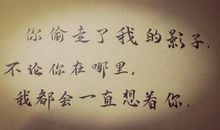 你偷走了我的影子，
不论你在哪里，
我都会一直想着你．